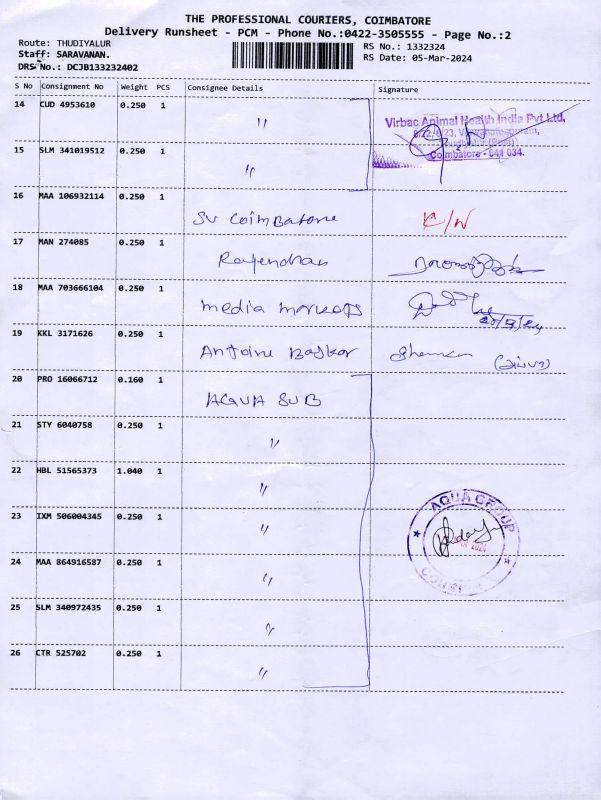 THE PROFESSIONAL COURIERS, COIMBATORE
Delivery Runsheet - PCM - Phone No.:0422-3505555 - Page No.:2
Route: THUDIYALUR RS No.: 1332324
Staff: SARAVANAN. RS Date: 05-Mar-2024
DRS No.: DCJB133232402
S No Consignment No Weight PCS Consignee Details Signature
14 CUD 4953610 0.250 1 "
Virbac Animal Health India Pvt Ltd,
15 SLM 341019512 0.250 1 "
Coimbatore - 641 034.
16 MAA 106932114 0.250 1 SV Coimbatore
17 MAN 274085 0.250 1 Rajendran
18 MAA 703666104 0.250 1 media markets
19 KKL 3171626 0.250 1 Antoine Baskar
20 PRO 16066712 0.160 1 ACQUA SUB
21 STY 6040758 0.250 1 "
22 HBL 51565373 1.040 1 "
23 IXM 506004345 0.250 1 " AQUA GROUP
24 MAA 864916587 0.250 1 "
25 SLM 340972435 0.250 1 "
26 CTR 525702 0.250 1 "